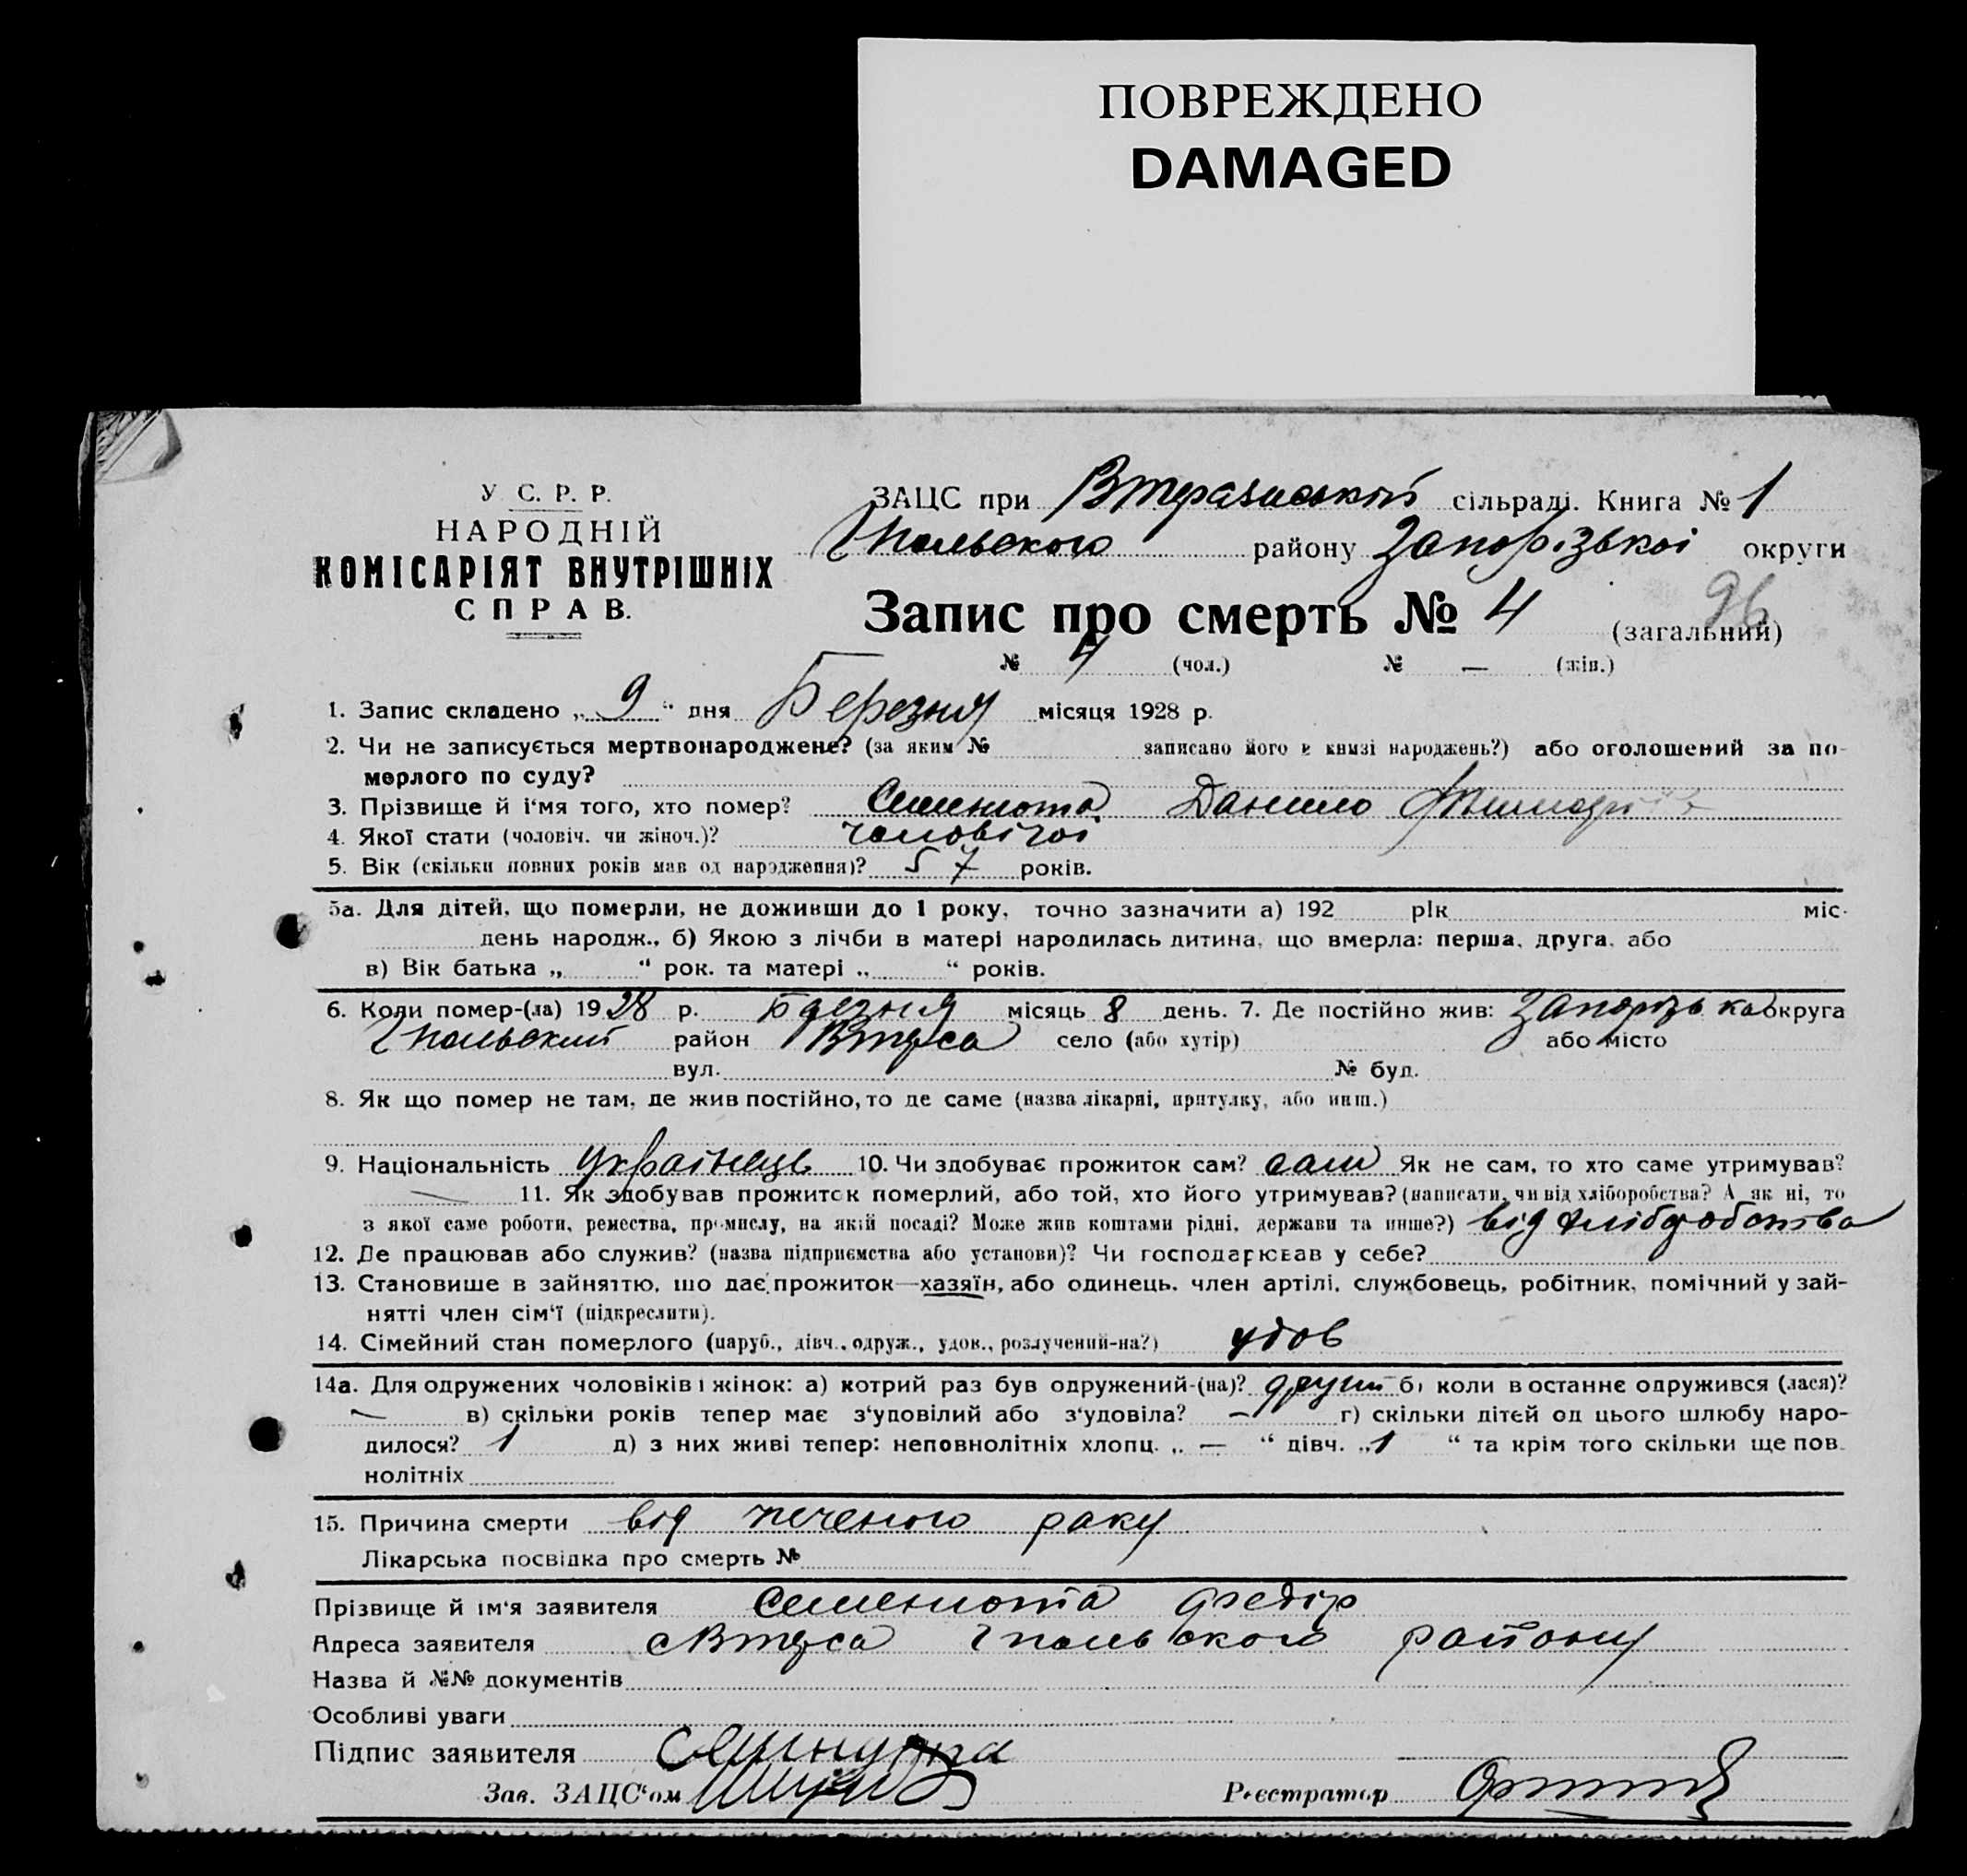 ПОВРЕЖДЕНО
DAMAGED
У. С. Р. Р.
НАРОДНІЙ
КОМІСАРІЯТ ВНУТРІШНІХ
СПРАВ.
ЗАЦС при сільраді. Книга № 1
Гпольського району Запорізької округи
96
Запис про смерть № 4 (загальний)
№ 4 (чол.) № — (жін.)
1. Запис складено „ 9 “ дня Березня місяця 1928 р.
2. Чи не записується мертвонароджене? (за яким № записано його в книзі народжень?) або оголошений за по-
мерлого по суду?
3. Прізвище й і'мя того, хто помер? Семенюта Данило
4. Якої стати (чоловіч. чи жіноч.)? чоловічої
5. Вік (скільки повних років мав од народження)? 57 років.
5а. Для дітей, що померли, не доживши до 1 року, точно зазначити а) 192 рік міс.
день народж., б) Якою з лічби в матері народилась дитина, що вмерла: перша, друга, або
в) Вік батька „ “ рок. та матері „ “ років.
6. Коли помер-(ла) 1928 р. Березня місяць 8 день. 7. Де постійно жив: Запорізька округа
Гпольський район село (або хутір) або місто
вул. № буд.
8. Як що помер не там, де жив постійно, то де саме (назва лікарні, притулку, або инш.)
9. Національність українець 10. Чи здобуває прожиток сам? сам Як не сам, то хто саме утримував?
— 11. Як здобував прожиток померлий, або той, хто його утримував? (написати, чи від хліборобства? А як ні, то
з якої саме роботи, ремества, промислу, на якій посаді? Може жив коштами рідні, держави та инше?) від хліборобства
12. Де працював або служив? (назва підприємства або установи)? Чи господарював у себе?
13. Становище в зайняттю, що дає прожиток—хазяїн, або одинець, член артілі, службовець, робітник, помічний у зай-
нятті член сім'ї (підкреслити).
14. Сімейний стан померлого (паруб., дівч., одруж., удов., розлучений-на?) удов
14а. Для одружених чоловіків і жінок: а) котрий раз був одружений-(на)? другий б) коли в останнє одружився (лася)?
— в) скільки років тепер має з'уповілий або з'удовіла? — г) скільки дітей од цього шлюбу наро-
дилося? 1 д) з них живі тепер: неповнолітніх хлопц. „ — “ дівч. „ 1 “ та крім того скільки ще пов.
нолітніх
15. Причина смерти від раку
Лікарська посвідка про смерть №
Прізвище й ім'я заявителя Семенюта Федір
Адреса заявителя Гпольського району
Назва й №№ документів
Особливі уваги
Підпис заявителя
Зав. ЗАЦС'ом Реєстратор